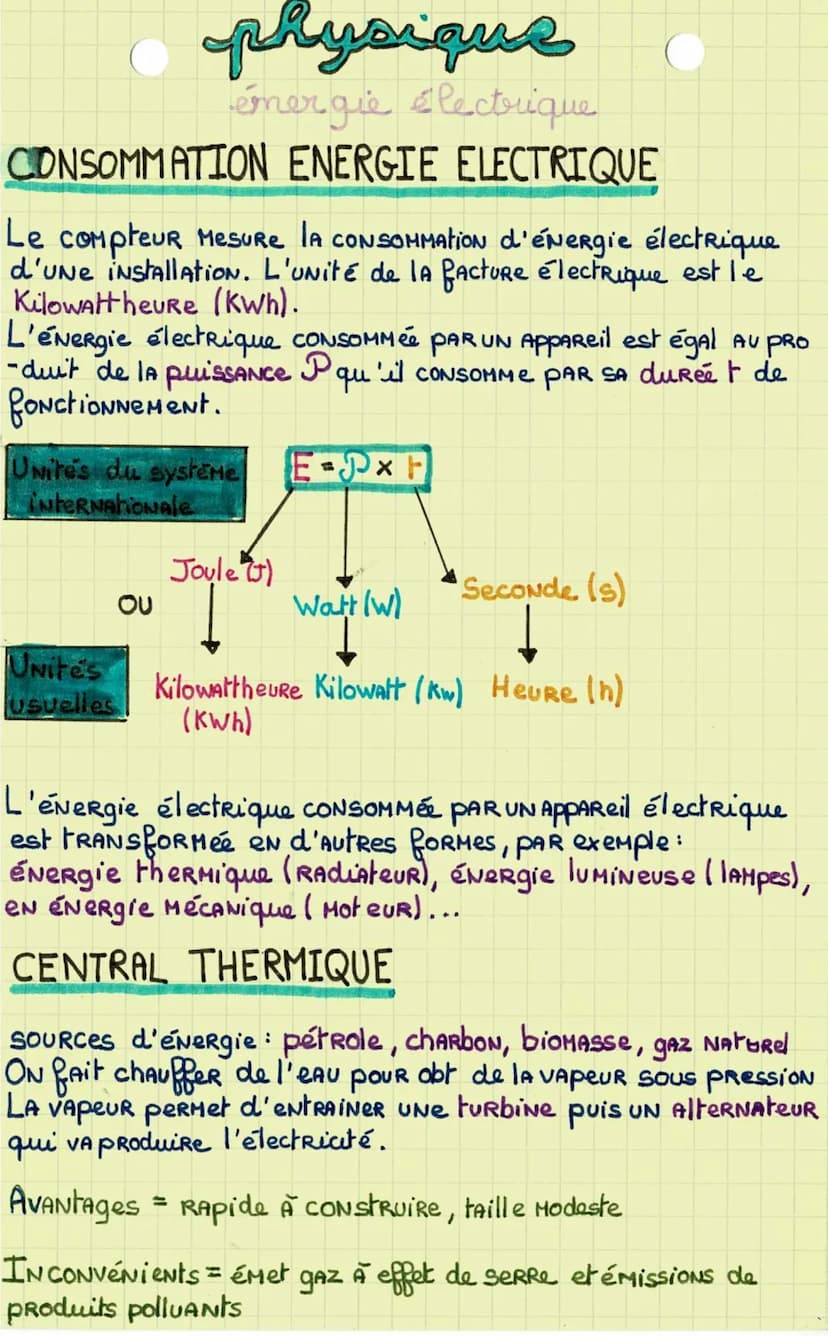 physique
énergie électrique
CONSOMMATION ENERGIE ELECTRIQUE
Le compteur mesure la consommation d'énergie électrique
d'une installation. L'unité de la facture électrique est le
Kilowattheure (KWh).
L'énergie électrique consommée par un appareil est égal au pro
-duit de la puissance P qu'il consomme par sa durée t de
fonctionnement.
Unités du système
internationale
E = P x t
Joule (J)
OU
Watt (W)
Seconde (s)
Unités
usuelles
Kilowattheure
(KWh)
Kilowatt (Kw)
Heure (h)
L'énergie électrique consommée par un appareil électrique
est transformée en d'autres formes, par exemple :
énergie thermique (radiateur), énergie lumineuse (lampes),
en énergie mécanique ( moteur)...
CENTRAL THERMIQUE
sources d'énergie : pétrole, charbon, biomasse, gaz naturel
On fait chauffer de l'eau pour obt de la vapeur sous pression
La vapeur permet d'entrainer une turbine puis un alternateur
qui va produire l'électricité.
Avantages = rapide à construire, taille modeste
Inconvénients = émet gaz à effet de serre et émissions de
produits polluants